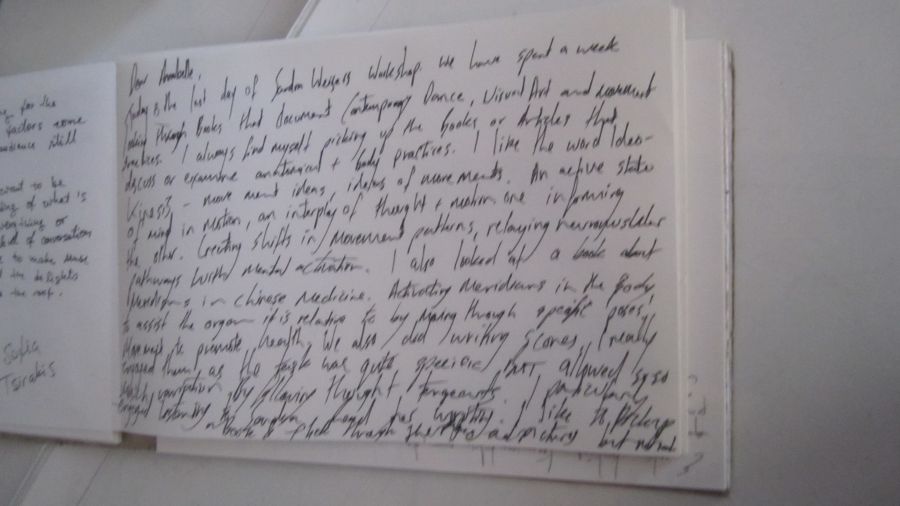 ng for the
factors some
audience still
want to be
of what is
everything or
kind of conversations
to make sense
the
the roof.
Sofia
Tsirakis
Dear Annabelle,
Today is the last day of Workshop. We have spent a week
looking through Books that document Contemporary Dance, Visual Art and movement
practices. I always find myself picking up the books or Articles that
discuss or examine anatomical + body practices. I like the word Ideo-
Kinesis - movement ideas, ideas of movements. An active state
of mind in motion, an interplay of thought + motion one informing
the other. Creating shifts in movement patterns, relaying neuromuscular
pathways with mental activation. I also looked at a book about
Meridians in Chinese Medicine. Activating Meridians in the Body
to assist the organ it is relative to by moving through specific poses/
Movements to promote health. We also did writing scores, I really
enjoyed them as the task was quite specific BUT allowed
by following thought tangents. I particularly
I like to pickup
through the and pictures but not